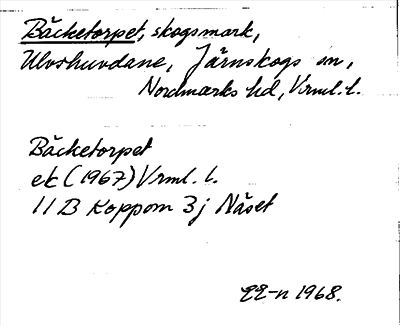 Bäcketorpet, skogsmark,
Ulvshuvdane, Järnskogs sn,
Nordmarks hd, Vrml. l.
Bäcketorpet
ek (1967) Vrml. l.
11B Koppom 3j Näset
1968.